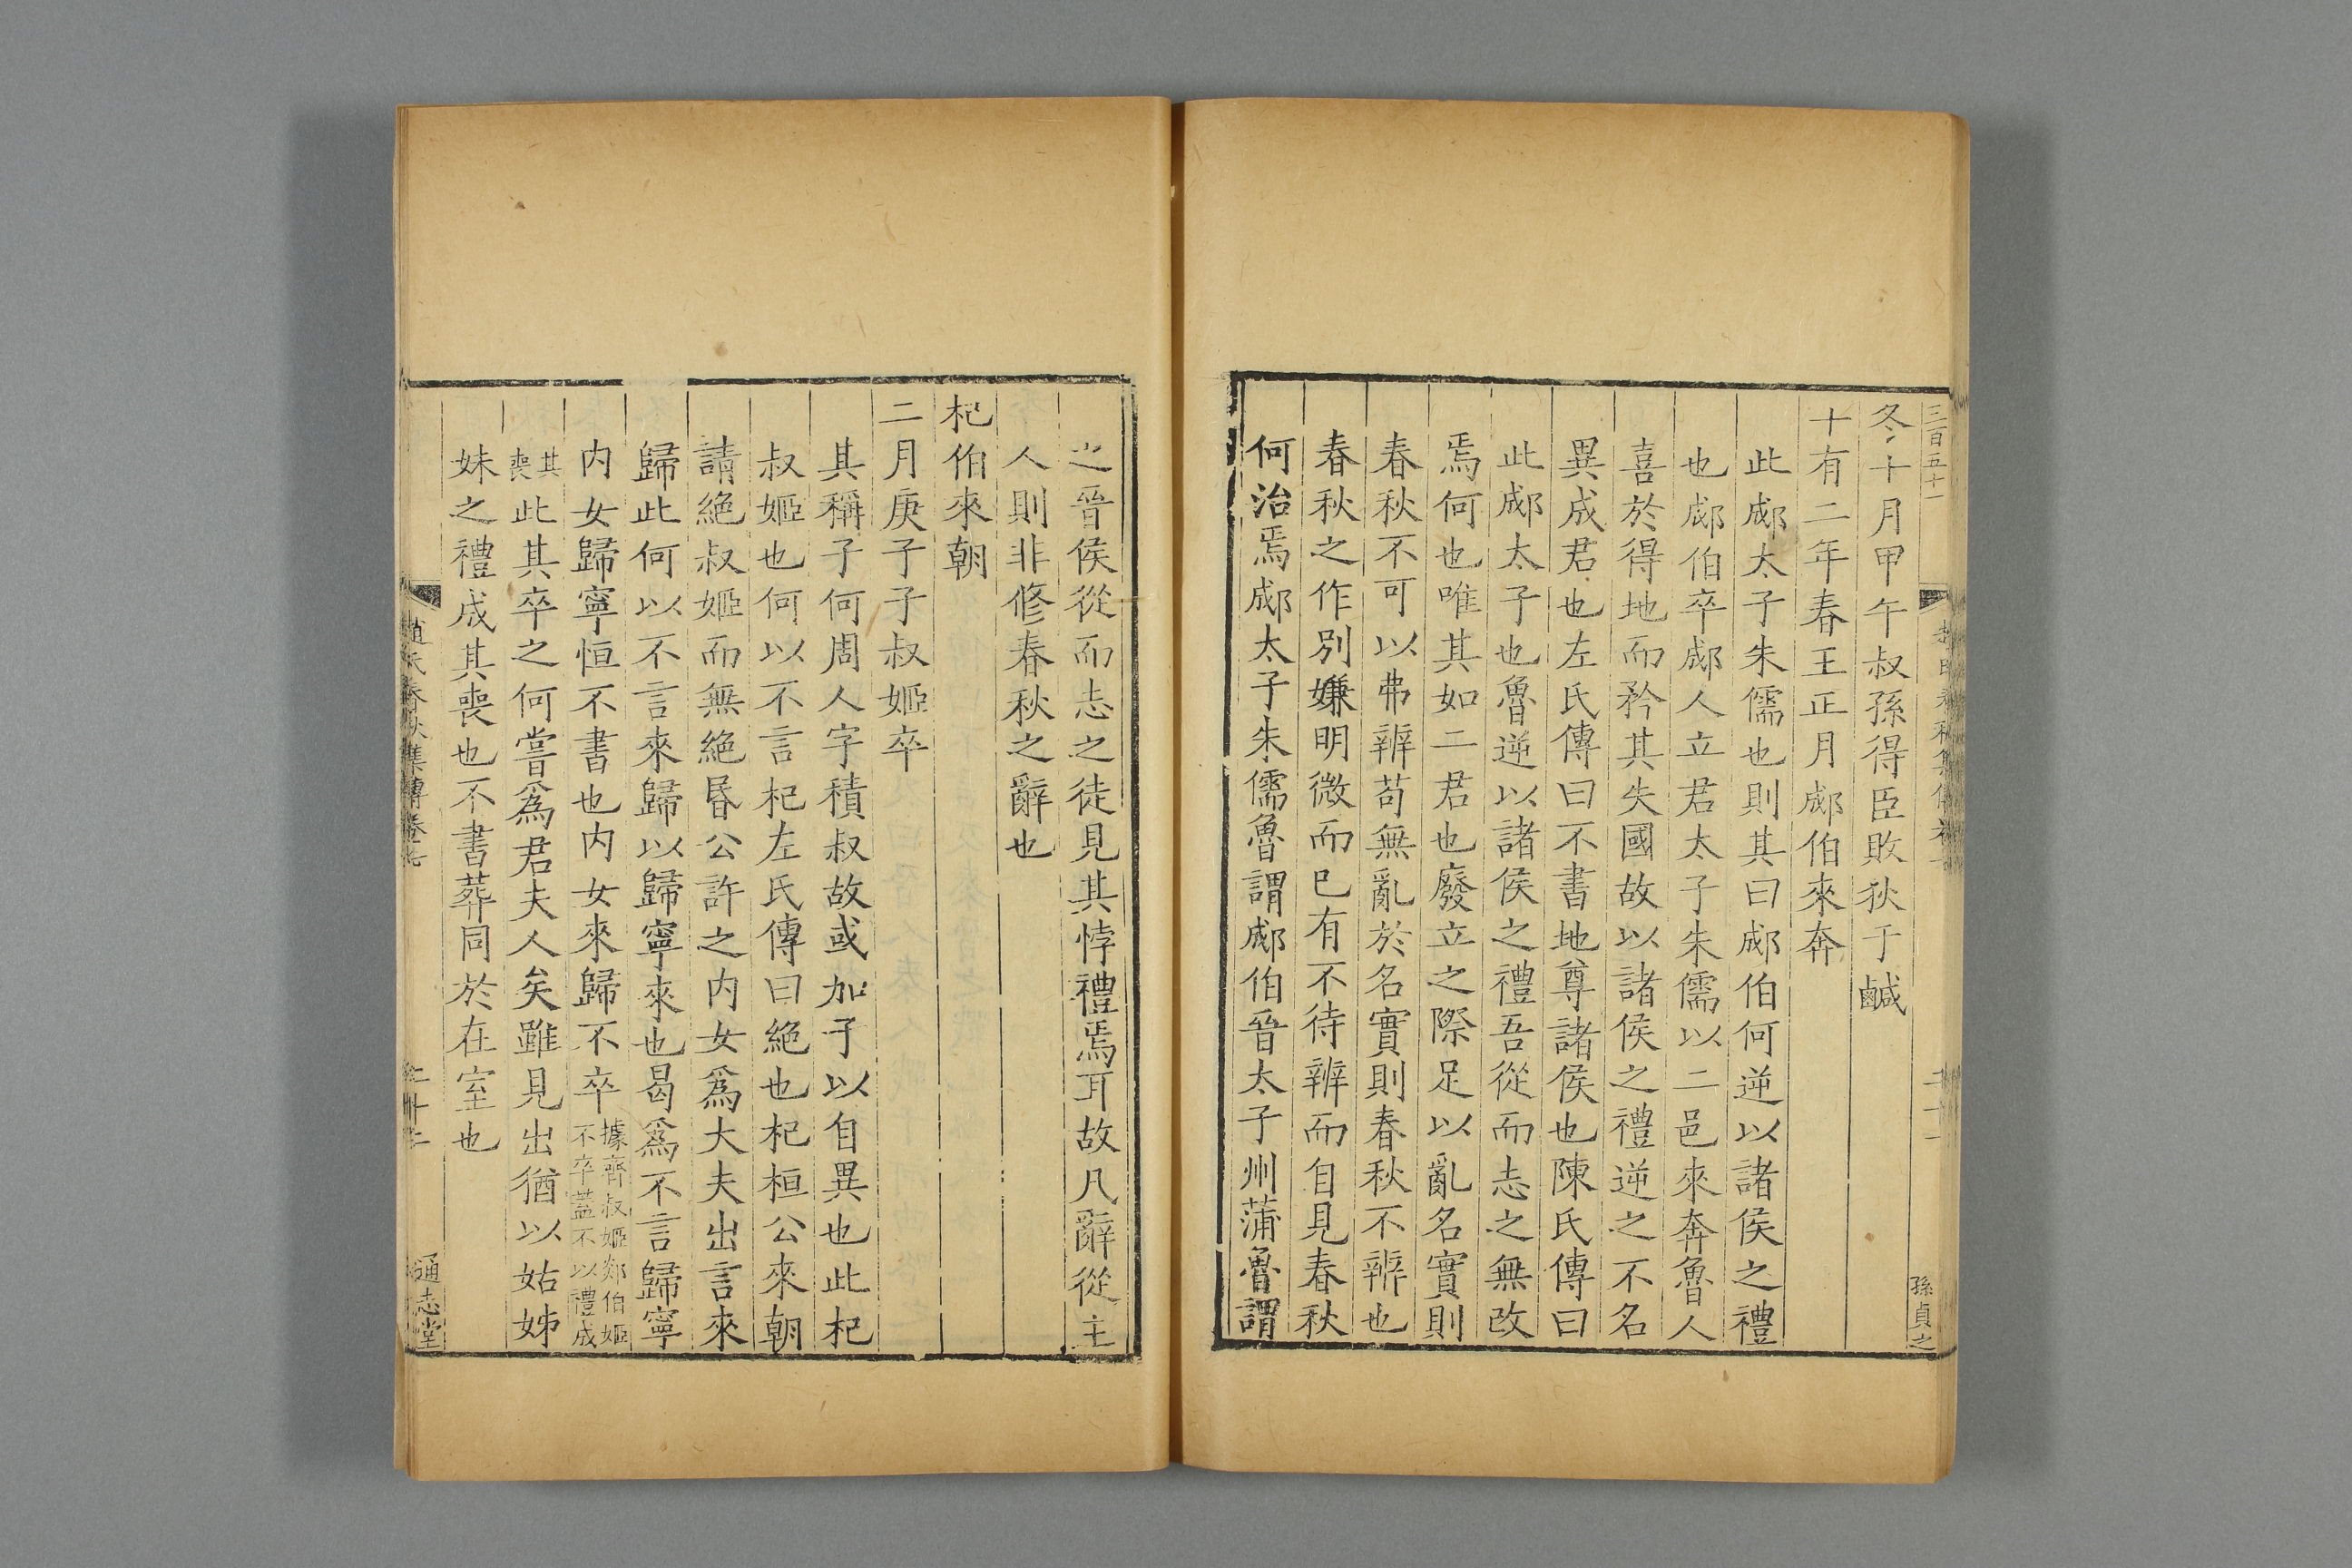 三百五十一
孫貞之
冬十月甲午叔孫得臣敗狄于鹹
十有二年春王正月郕伯來奔
此郕太子朱儒也則其曰郕伯何逆以諸侯之禮
也郕伯卒郕人立君太子朱儒以二邑來奔魯人
喜於得地而矜其失國故以諸侯之禮逆之不名
異成君也左氏傳曰不書地尊諸侯也陳氏傳曰
此郕太子也魯逆以諸侯之禮吾從而志之無改
焉何也唯其如二君也廢立之際足以亂名實則
春秋不可以弗辨苟無亂於名實則春秋不辨也
春秋之作別嫌明微而已有不待辨而自見春秋
何治焉郕太子朱儒魯謂郕伯晉太子州蒲魯謂
之晉侯從而志之徒見其悖禮焉耳故凡辭從主
人則非修春秋之辭也
杞伯來朝
二月庚子子叔姬卒
其稱子何周人字積叔故或加子以自異也此杞
叔姬也何以不言杞左氏傳曰絶也杞桓公來朝
請絶叔姬而無絶昬公許之内女爲大夫出言來
歸此何以不言來歸以歸寧來也曷爲不言歸寧
内女歸寧恒不書也内女來歸不卒據齊叔姬郯伯姬
不卒蓋不以禮成
其
喪此其卒之何嘗爲君夫人矣雖見出猶以姑姊
妹之禮成其喪也不書葬同於在室也
趙氏春秋集傳卷七
二十二
通志堂